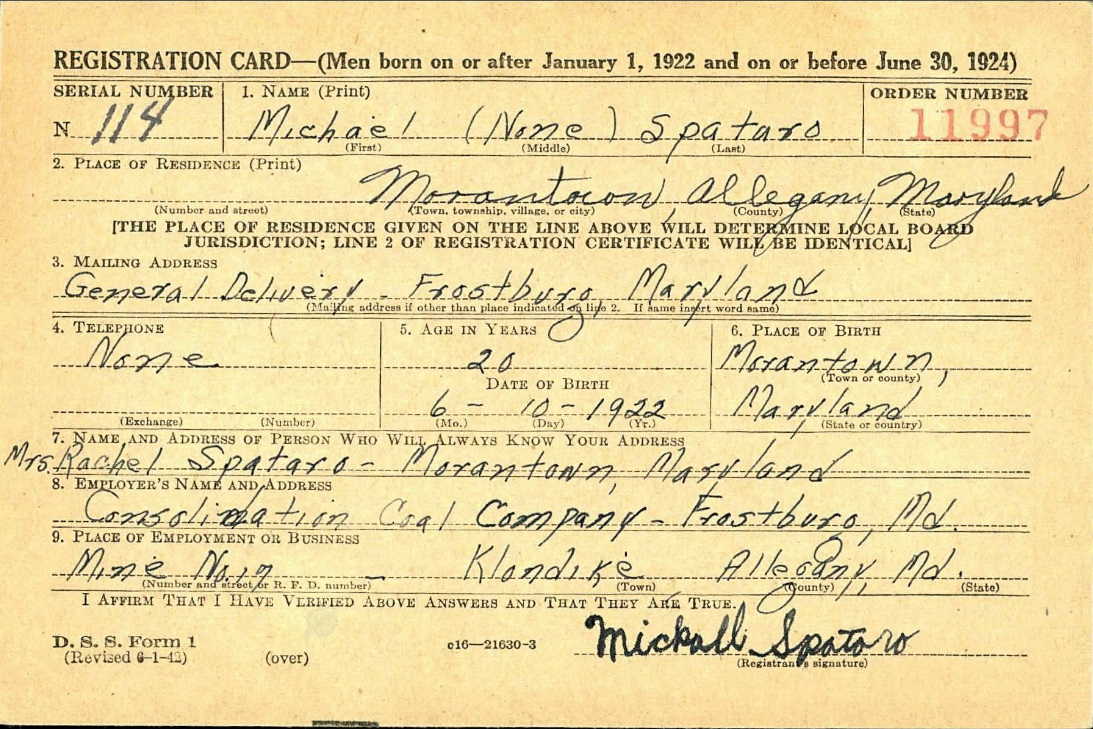 REGISTRATION CARD—(Men born on or after January 1, 1922 and on or before June 30, 1924)
SERIAL NUMBER 1. NAME (Print) ORDER NUMBER
N 114 Michael (None) Spataro 11997
(First) (Middle) (Last)
2. PLACE OF RESIDENCE (Print)
Morantown, Allegany, Maryland
(Number and street) (Town, township, village, or city) (County) (State)
[THE PLACE OF RESIDENCE GIVEN ON THE LINE ABOVE WILL DETERMINE LOCAL BOARD
JURISDICTION; LINE 2 OF REGISTRATION CERTIFICATE WILL BE IDENTICAL]
3. MAILING ADDRESS
General Delivery - Frostburg, Maryland
(Mailing address if other than place indicated on line 2. If same insert word same)
4. TELEPHONE 5. AGE IN YEARS 6. PLACE OF BIRTH
None 20 Morantown,
(Town or county)
DATE OF BIRTH
6 - 10 - 1922 Maryland
(Exchange) (Number) (Mo.) (Day) (Yr.) (State or country)
7. NAME AND ADDRESS OF PERSON WHO WILL ALWAYS KNOW YOUR ADDRESS
Mrs. Rachel Spataro - Morantown, Maryland
8. EMPLOYER'S NAME AND ADDRESS
Consolidation Coal Company - Frostburg, Md.
9. PLACE OF EMPLOYMENT OR BUSINESS
Mine No. 17 - Klondike Allegany, Md.
(Number and street or R. F. D. number) (Town) (County) (State)
I AFFIRM THAT I HAVE VERIFIED ABOVE ANSWERS AND THAT THEY ARE TRUE.
D. S. S. Form 1
(Revised 6-1-42) (over) c16—21630-3 Mickall Spataro
(Registrant's signature)